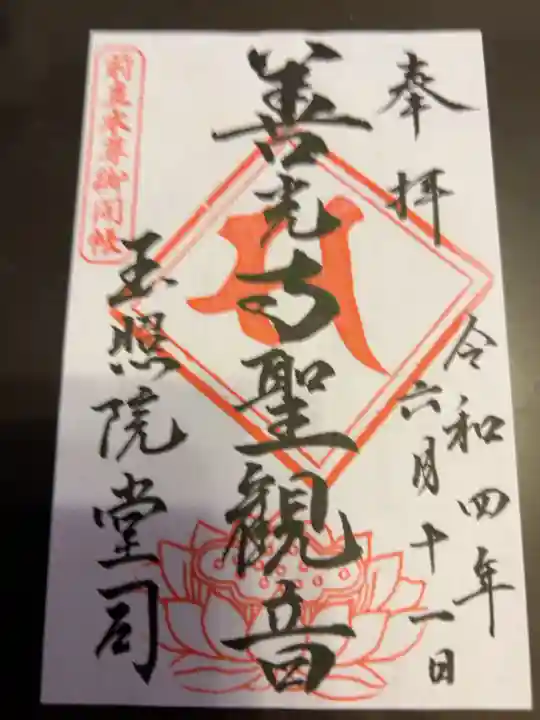 奉拝
令和四年
六月十一日
善光寺聖観音
玉照院堂司
前立本尊御開帳